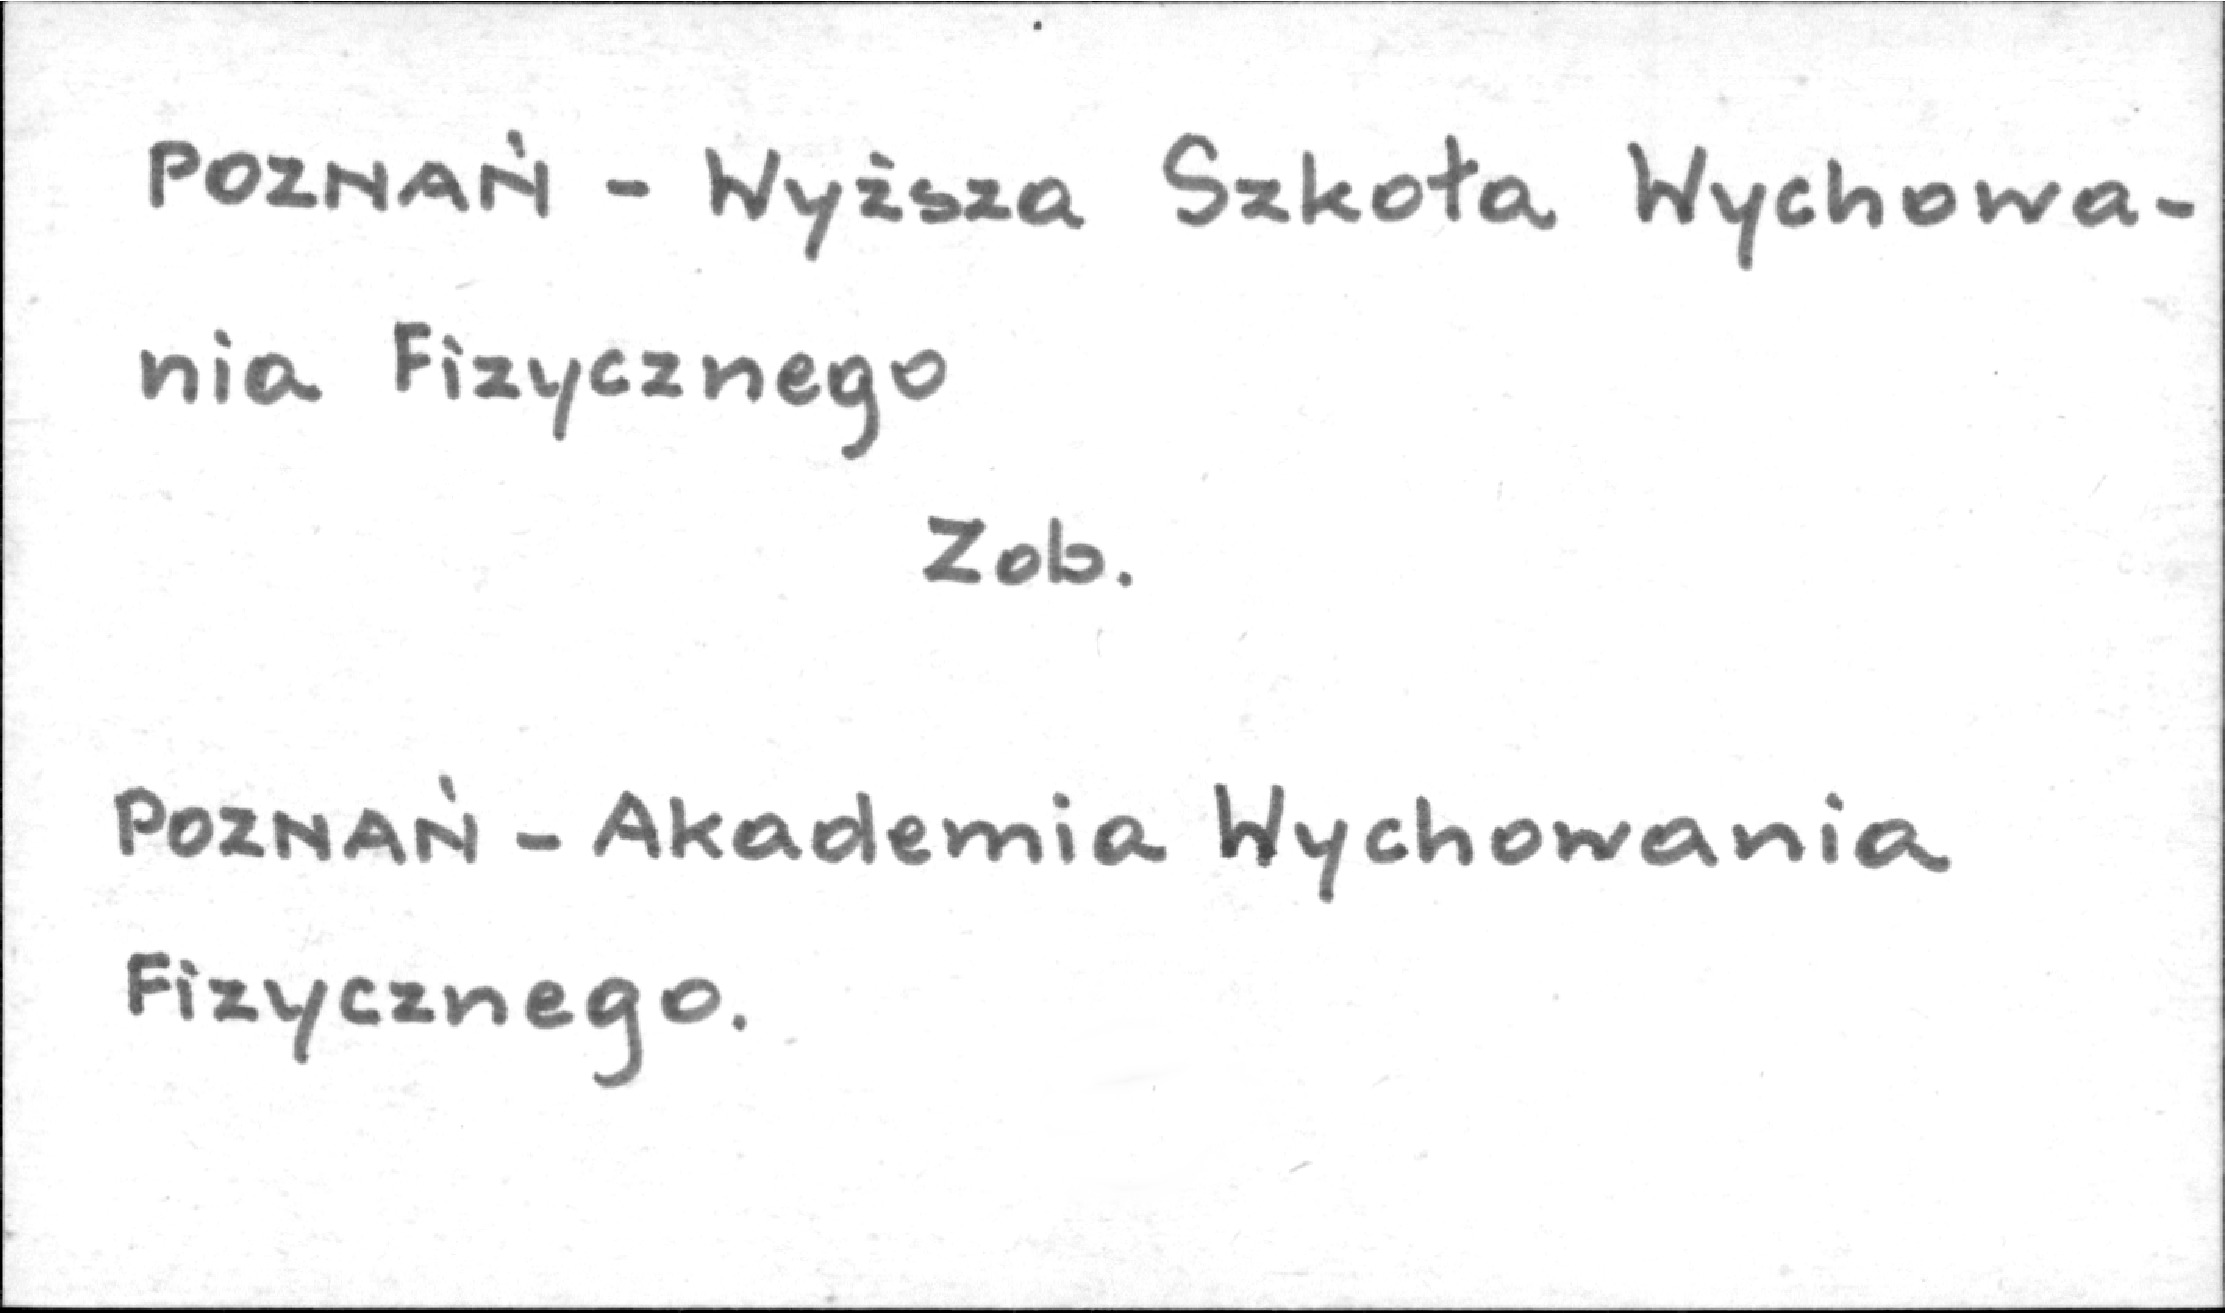 POZNAŃ - Wyższa Szkoła Wychowa-
nia Fizycznego
Zob.
POZNAŃ - Akademia Wychowania
Fizycznego.